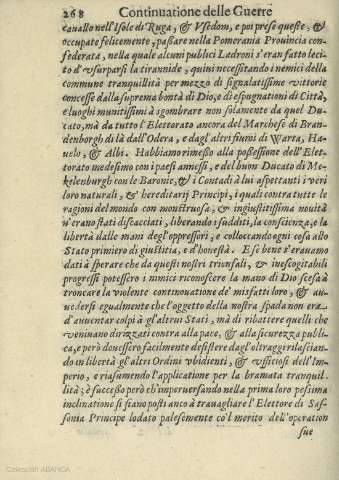 268 Continuatione delle Guerre
cauallo nell'Isole di Ruga, & Vsedom, e poi prese queste, &
occupate felicemente, passare nella Pomerania Prouincia con-
federata, nella quale alcuni publici Ladroni s'eran fatto leci-
to d'vsurparsi la tirannide, quini necessitando i nemici della
commune tranquillità per mezzo di segnalatissime vittorie
concesse dalla suprema bontà di Dio, e di espugnationi di Città,
e luoghi munitissimi à sgombrare non solamente da quel Du-
cato, mà da tutto l'Elettorato ancora del Marchese di Bran-
denborgh di là dall'Odera, e dagl'altri fiumi di Warta, Ha-
uelo, & Albi. Habbiamo rimesso alla possessione dell'Elet-
torato medesimo con i paesi annessi, e del buon Ducato di Me-
kelenburgh con le Baronie, & i Contadi à lui aspettanti i veri
loro naturali, & hereditarij Principi, i quali contra tutte le
ragioni del mondo con monstruosa, & ingiustissima nouità
n'erano stati discacciati, liberando i sudditi, la conscienza, e la
libertà dalle mani degl'oppressori, e collocando ogni cosa allo
Stato primiero di giustitia, e d'honestà. E se bene s'erauamo
dati à sperare che da questi nostri trionfali, & inescogitabili
progressi potessero i nimici riconoscere la mano di Dio scesa à
troncare la violente continuatione de' misfatti loro, & au-
uedersi egualmente che l'oggetto della nostra spada non era
d'auuentar colpi à gl'altrui Stati, mà di ribattere quelli che
veniuano dirizzati contra alla pace, & alla sicurezza publi-
ca, e però douessero facilmente desistere dagl'oltraggi rilascian-
do in libertà gl'altri Ordini vbidienti, & vfficiosi dell'Im-
perio, e riassumendo l'applicatione per la bramata tranquil-
lità; è successo però ch'imperuersando nella prima loro pessima
inclinatione si siano posti anco à trauagliare l'Elettore di Sas-
sonia Principe lodato palesemente co'l merito dell'operation
sue
Colección ABANCA